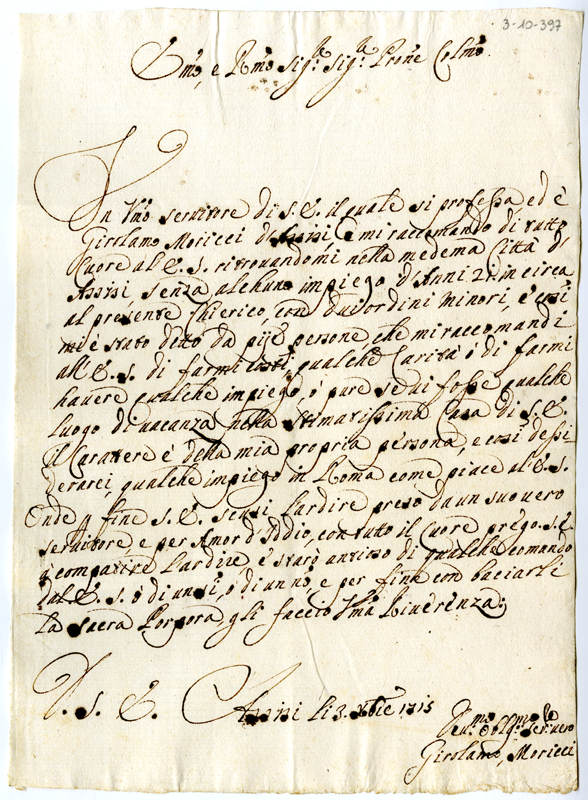 3-10-397
Emo, e Rmo Sigr. Sigr. Prone Colmo.
Un Vmo servitore di S. E. il quale si professa ed è
Girolamo Moricci d'Assisi è mi raccomando di tutto
Cuore al E. S. ritrovandomi nella medema Città d'
Assisi, senza alchuno impiego d'Anni 21 in circa
al presente Chierico, con dui ordini Minori, è cosi
mi è stato detto da più persone che mi raccomandi
all'E. S. di farmi qualche Carità ò di farmi
havere qualche impiego, ò pure se vi fosse qualche
luogo di vacanza nella stimatissima Casa di S. E.
il Carattere è della mia propria persona, e cosi desi
derarei, qualche impiego in Roma come piace al E. S.
Onde p fine S. E. scusi l'ardire preso da un suo vero
servitore e per Amor d'Iddio, con tutto il Cuore prego. S. E.
a compatire l'ardire, è starò antioso di qualche comando
dal E. S. ò di un si, ò di un nò, e per fine con baciarli
la Sacra Porpora gli faccio Vma Riverenza;
D. S. E. Assisi li 3. Xbre 1715
Devmo. Oblgmo Ser: vero
Girolamo, Moricci